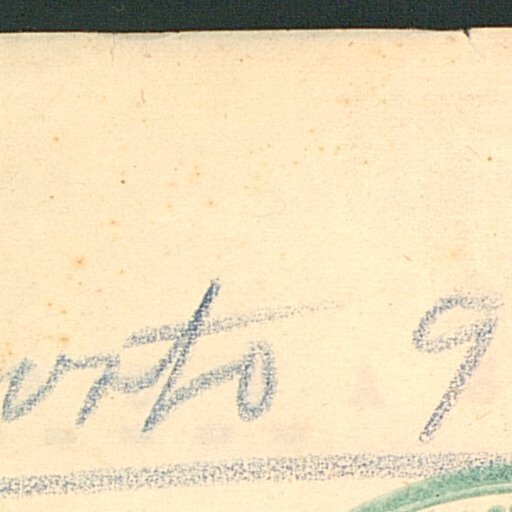 urto 9